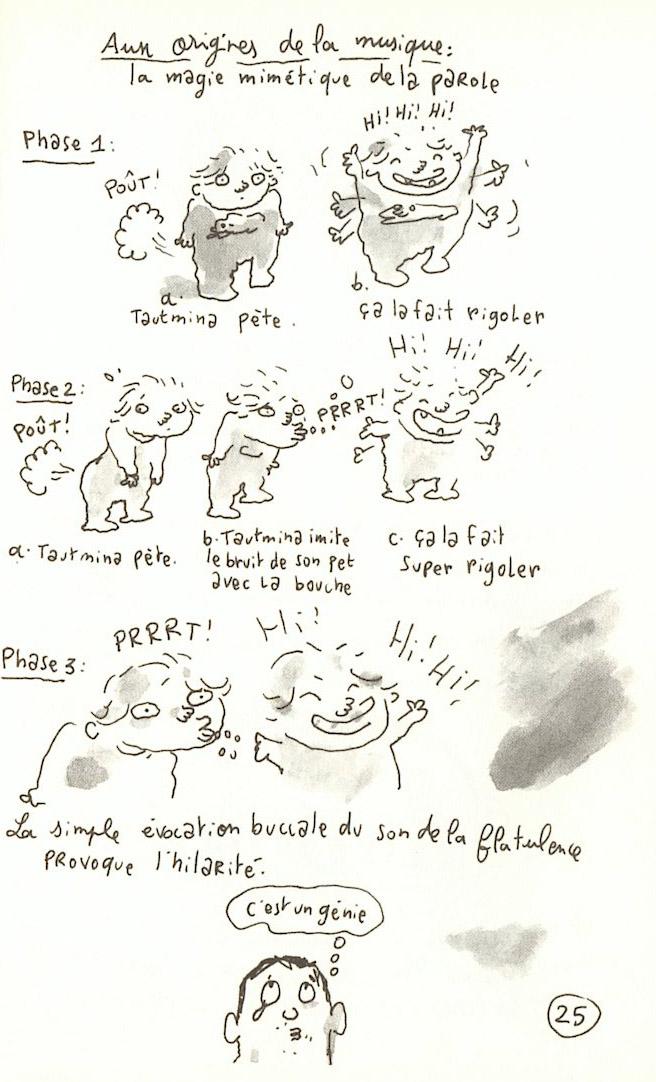 Aux origines de la musique:
la magie mimétique de la parole
Phase 1:
POÛT!
Hi! Hi! Hi!
a.
Tautmina pète.
b.
ça la fait rigoler
Phase 2:
POÛT!
PRRRT!
Hi! Hi! Hi!
a. Tautmina pète.
b. Tautmina imite
le bruit de son pet
avec la bouche
c. ça la fait
super rigoler
Phase 3:
PRRRT!
Hi!
Hi! Hi!
La simple évocation buccale du son de la flatulence
provoque l'hilarité.
c'est un génie
25